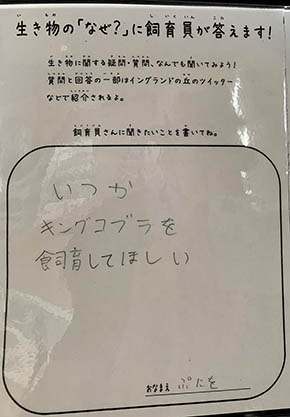 生き物の「なぜ？」に飼育員が答えます！
生き物に関する疑問・質問、なんでも聞いてみよう！
質問と回答の一部はイングランドの丘のツイッター
などで紹介されるよ。
飼育員さんに聞きたいことを書いてね。
いつか
キングコブラを
飼育してほしい
おなまえ ぷにを